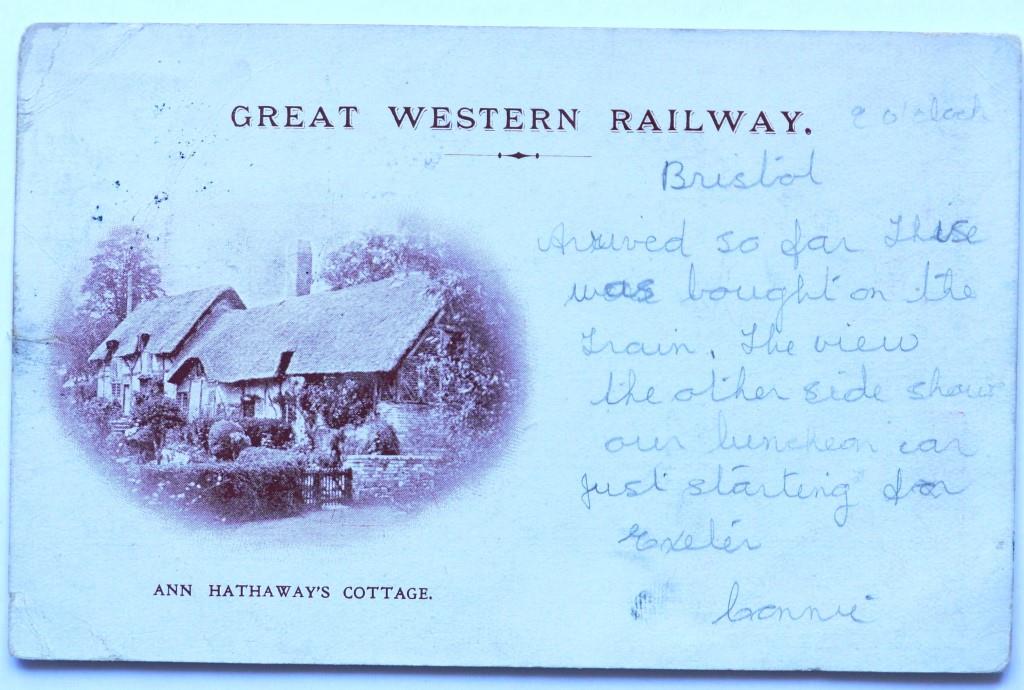 GREAT WESTERN RAILWAY.
o'clock
Bristol
Arrived so far These
was bought on the
Train. The view
the other side shows
our luncheon car
just starting for
Exeter
Connie
ANN HATHAWAY'S COTTAGE.